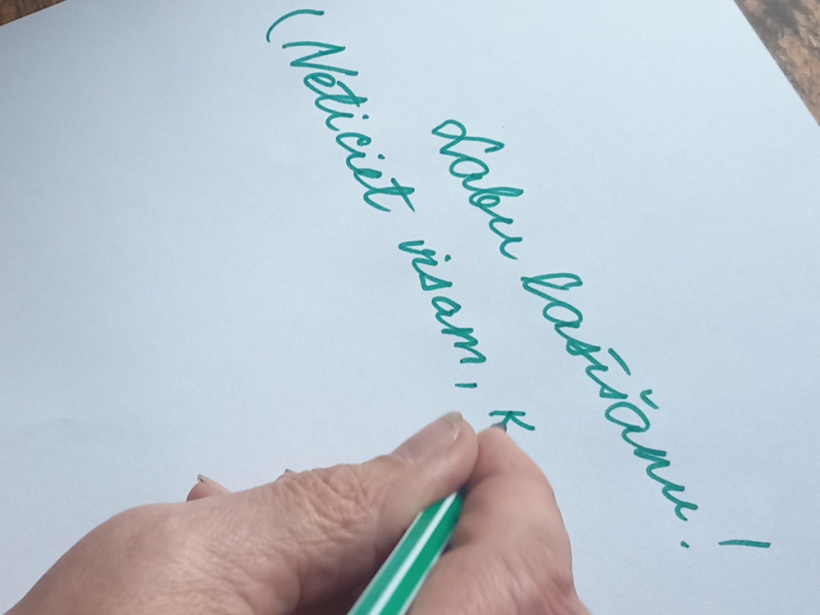 Labu lasīšanu!
(Neticiet visam, k